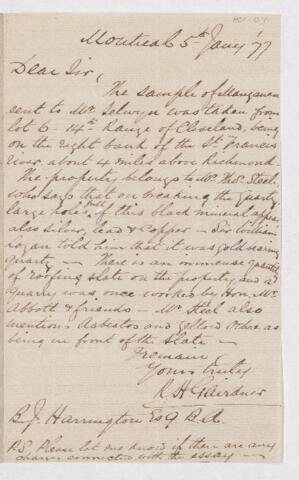 Montreal 5th Jany '77
Dear Sir,
The sample of Manganese
sent to Mr. Selwyn was taken from
lot 6 - 14th Range of Cleveland, being
on the right bank of the St. Francis
River, about 4 miles above Richmond.
The property belongs to Mr. Thos. Steel
who says that on breaking the quartz
large holes full of this black mineral appear
also Silver, lead & Copper - Sir William
Logan told him that it was gold bearing
quartz - There is an immense quantity
of roofing slate on the property, and a
quarry was once worked by Hon. Mr.
Abbott & friends - Mr. Steel also
mentions Asbestos and Yellow Ochre as
being in front of the slate -
I remain
Yours truly
R. H. Gairdner
B. J. Harrington Esq. B.A.
P.S. Please let me know if there are any
charges connected with the assay -